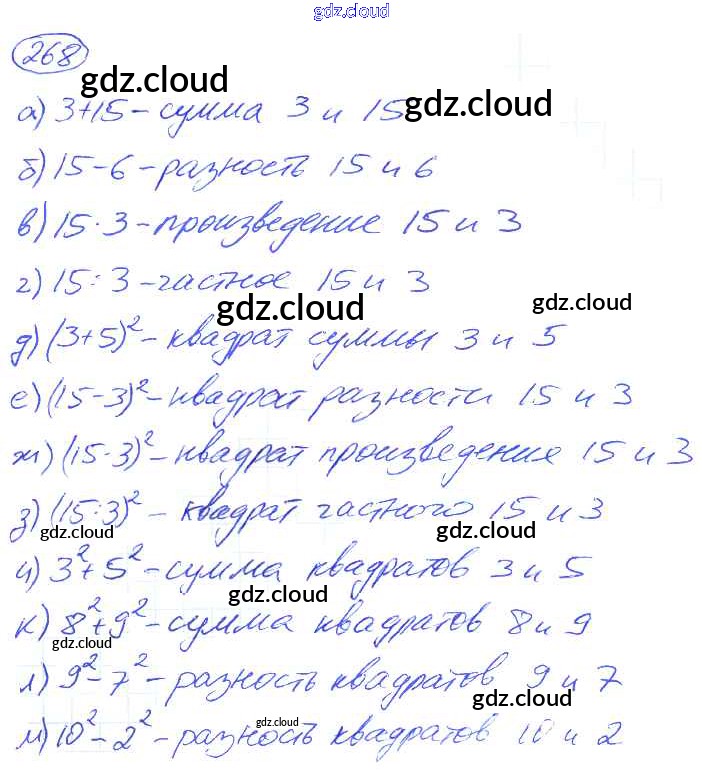 gdz.cloud
268
gdz.cloud
gdz.cloud
а) 3+15 - сумма 3 и 15
б) 15 - 6 - разность 15 и 6
в) 15 · 3 - произведение 15 и 3
г) 15 : 3 - частное 15 и 3
gdz.cloud
gdz.cloud
д) (3+5)² - квадрат суммы 3 и 5
е) (15-3)² - квадрат разности 15 и 3
ж) (15·3)² - квадрат произведение 15 и 3
з) (15:3)² - квадрат частного 15 и 3
gdz.cloud
gdz.cloud
и) 3² + 5² - сумма квадратов 3 и 5
gdz.cloud
к) 8² + 9² - сумма квадратов 8 и 9
gdz.cloud
л) 9² - 7² - разность квадратов 9 и 7
gdz.cloud
gdz.cloud
м) 10² - 2² - разность квадратов 10 и 2